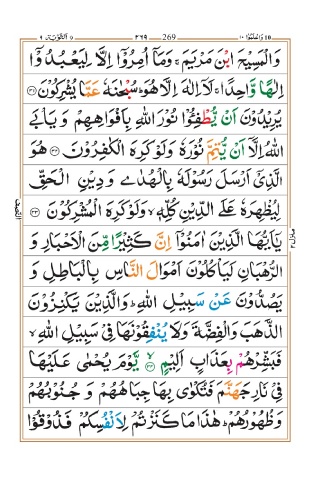 واعلموا ١٠ 269 ٢٦٩ التوبة ٩
وَالْمَسِيْحَ ابْنَ مَرْيَمَ ۚ وَمَاۤ اُمِرُوْۤا اِلَّا لِيَعْبُدُوْۤا
اِلٰهًا وَّاحِدًا ۚ لَاۤ اِلٰهَ اِلَّا هُوَ ؕ سُبْحٰنَهٗ عَمَّا يُشْرِكُوْنَ ﴿۳۱﴾
يُرِيْدُوْنَ اَنْ يُّطْفِـُٔوْا نُوْرَ اللّٰهِ بِاَفْوَاهِهِمْ وَ يَاْبَى
اللّٰهُ اِلَّاۤ اَنْ يُّتِمَّ نُوْرَهٗ وَلَوْ كَرِهَ الْكٰفِرُوْنَ ﴿۳۲﴾ هُوَ
الَّذِىْۤ اَرْسَلَ رَسُوْلَهٗ بِالْهُدٰى وَ دِيْنِ الْحَقِّ
لِيُظْهِرَهٗ عَلَى الدِّيْنِ كُلِّهٖ ۙ وَلَوْ كَرِهَ الْمُشْرِكُوْنَ ﴿۳۳﴾
يٰۤاَيُّهَا الَّذِيْنَ اٰمَنُوْۤا اِنَّ كَثِيْرًا مِّنَ الْاَحْبَارِ وَ
الرُّهْبَانِ لَيَاْكُلُوْنَ اَمْوَالَ النَّاسِ بِالْبَاطِلِ وَ
يَصُدُّوْنَ عَنْ سَبِيْلِ اللّٰهِ ؕ وَالَّذِيْنَ يَكْنِزُوْنَ
الذَّهَبَ وَالْفِضَّةَ وَلَا يُنْفِقُوْنَهَا فِىْ سَبِيْلِ اللّٰهِ ۙ
فَبَشِّرْهُمْ بِعَذَابٍ اَلِيْمٍ ﴿۳۴﴾ يَّوْمَ يُحْمٰى عَلَيْهَا
فِىْ نَارِ جَهَنَّمَ فَتُكْوٰى بِهَا جِبَاهُهُمْ وَ جُنُوْبُهُمْ
وَظُهُوْرُهُمْ ؕ هٰذَا مَا كَنَزْتُمْ لِاَنْفُسِكُمْ فَذُوْقُوْا
النصف
منزل ٢